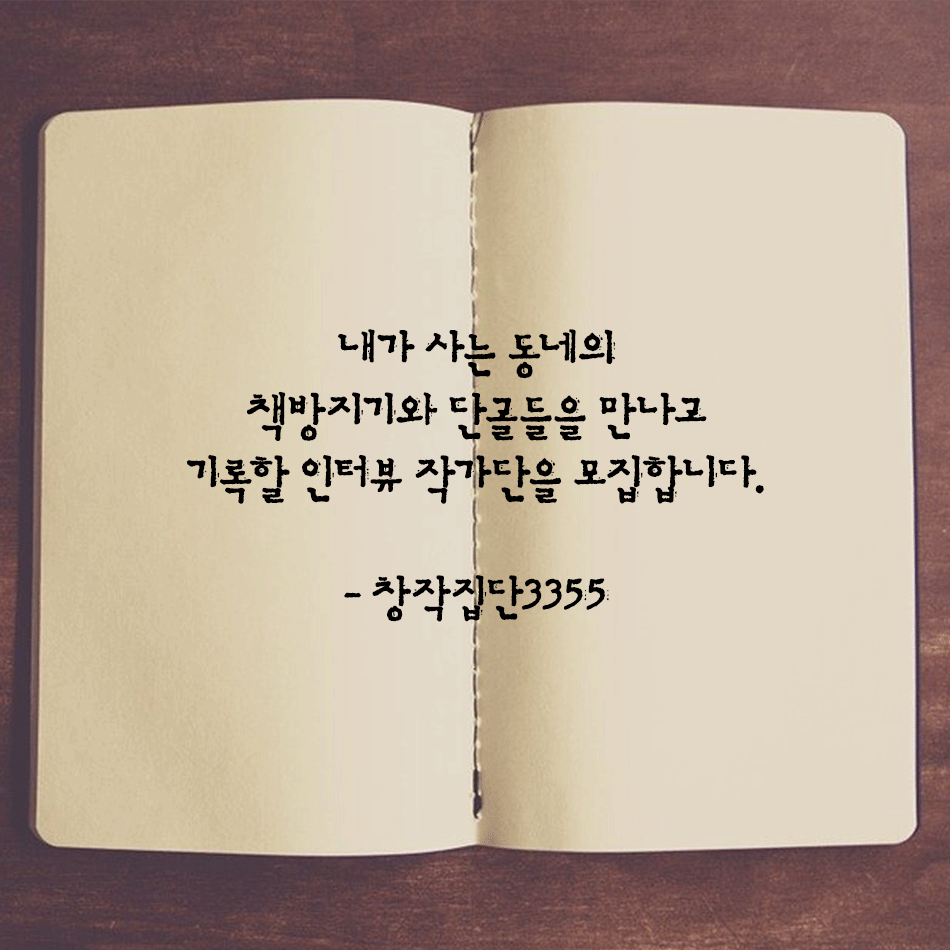 내가 사는 동네의
책방지기와 단골들을 만나고
기록할 인터뷰 작가단을 모집합니다.
- 창작집단3355